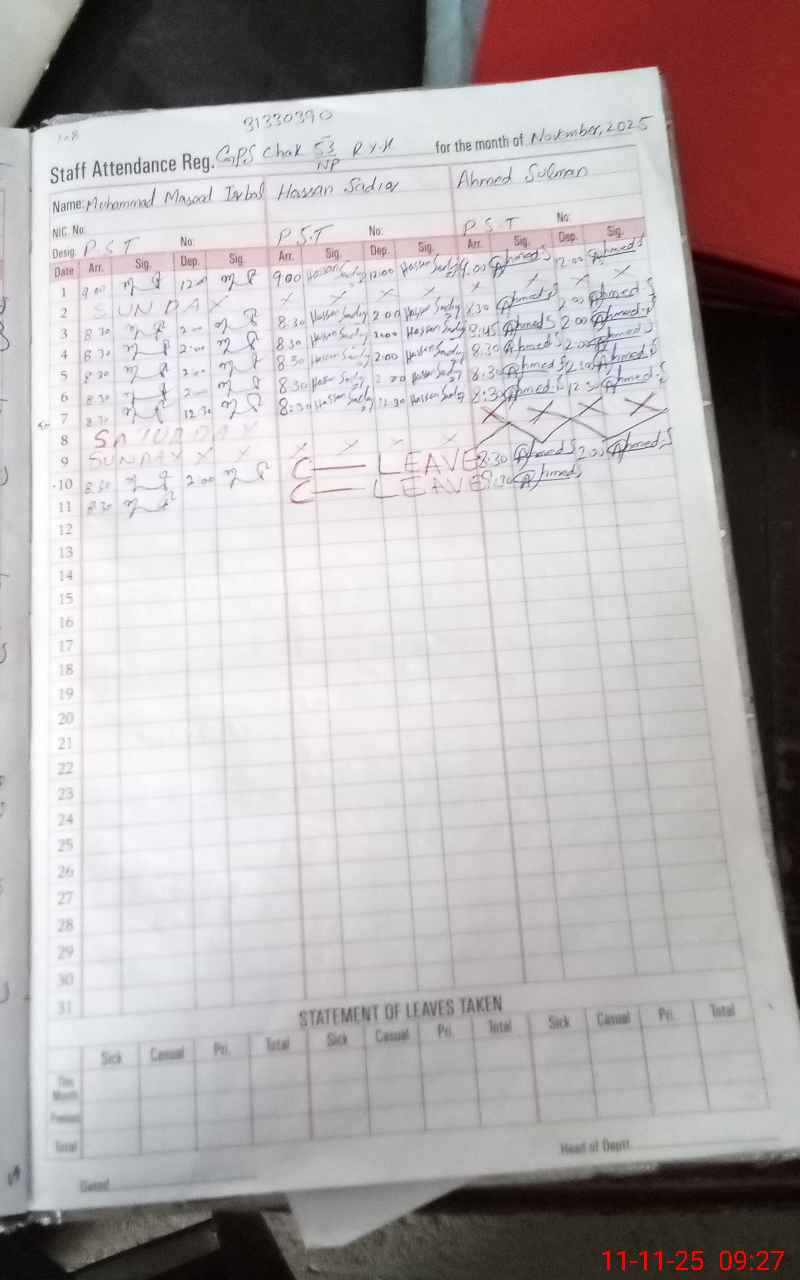 31330390
Staff Attendance Reg. GPS Chak 53/NP R.Y.K for the month of November, 2025
Name: Muhammad Masood Iqbal Hassan Sadiq Ahmed Suleman
NIC. No.
Desig. P.S.T No: P.S.T No: P.S.T No:
Date Arr. Sig. Dep. Sig. Arr. Sig. Dep. Sig. Arr. Sig. Dep. Sig.
1 9.00 12.00 9.00 Hassan Sadiq 12.00 Hassan Sadiq 9.00 Ahmed.S 12.00 Ahmed.S
2 SUNDAY X X X X X X X X
3 8.30 2.00 8:30 Hassan Sadiq 2.00 Hassan Sadiq 8:30 Ahmed.S 2.00 Ahmed.S
4 8.30 2.00 8:30 Hassan Sadiq 2.00 Hassan Sadiq 8:45 Ahmed.S 2.00 Ahmed.S
5 8.30 2.00 8:30 Hassan Sadiq 2.00 Hassan Sadiq 8:30 Ahmed.S 2.00 Ahmed.S
6 8.30 2.00 8:30 Hassan Sadiq 2.00 Hassan Sadiq 8:30 Ahmed.S Ahmed.S
7 8.30 12.30 8:30 Hassan Sadiq 12.30 Hassan Sadiq 8:30 Ahmed.S 12.30 Ahmed.S
8 SATURDAY X X X X
9 SUNDAY X X X X X X
10 8.30 2.00 C — LEAVE 8:30 Ahmed.S 2.00 Ahmed.S
11 8.30 C — LEAVE 8:30 Ahmed.S
12
13
14
15
16
17
18
19
20
21
22
23
24
25
26
27
28
29
30
31
STATEMENT OF LEAVES TAKEN
Sick Casual Pri. Total Sick Casual Pri. Total Sick Casual Pri. Total
This Month
Previous
Total
Dated Head of Deptt.
11-11-25 09:27